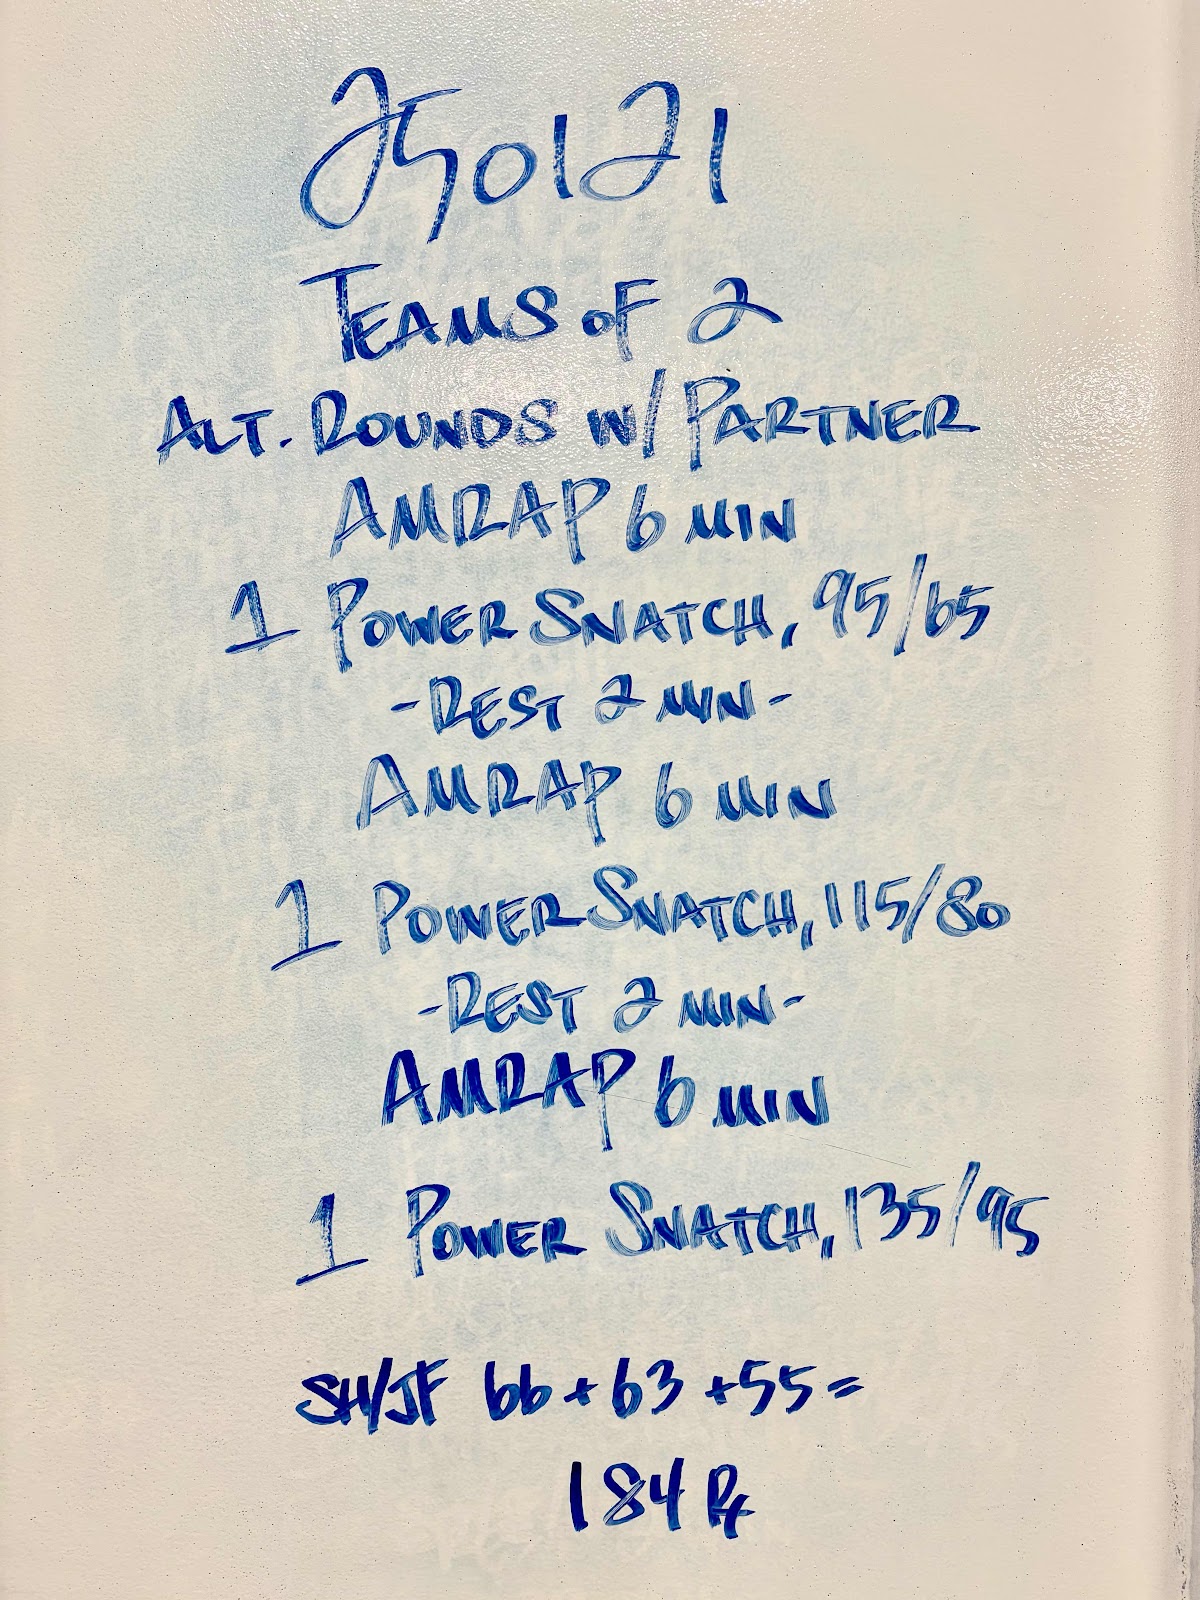 250121
TEAMS OF 2
ALT. ROUNDS W/ PARTNER
AMRAP 6 MIN
1 POWER SNATCH, 95/65
-REST 2 MIN-
AMRAP 6 MIN
1 POWER SNATCH, 115/80
-REST 2 MIN-
AMRAP 6 MIN
1 POWER SNATCH, 135/95
SH/JF 66+63+55=
184 Rx